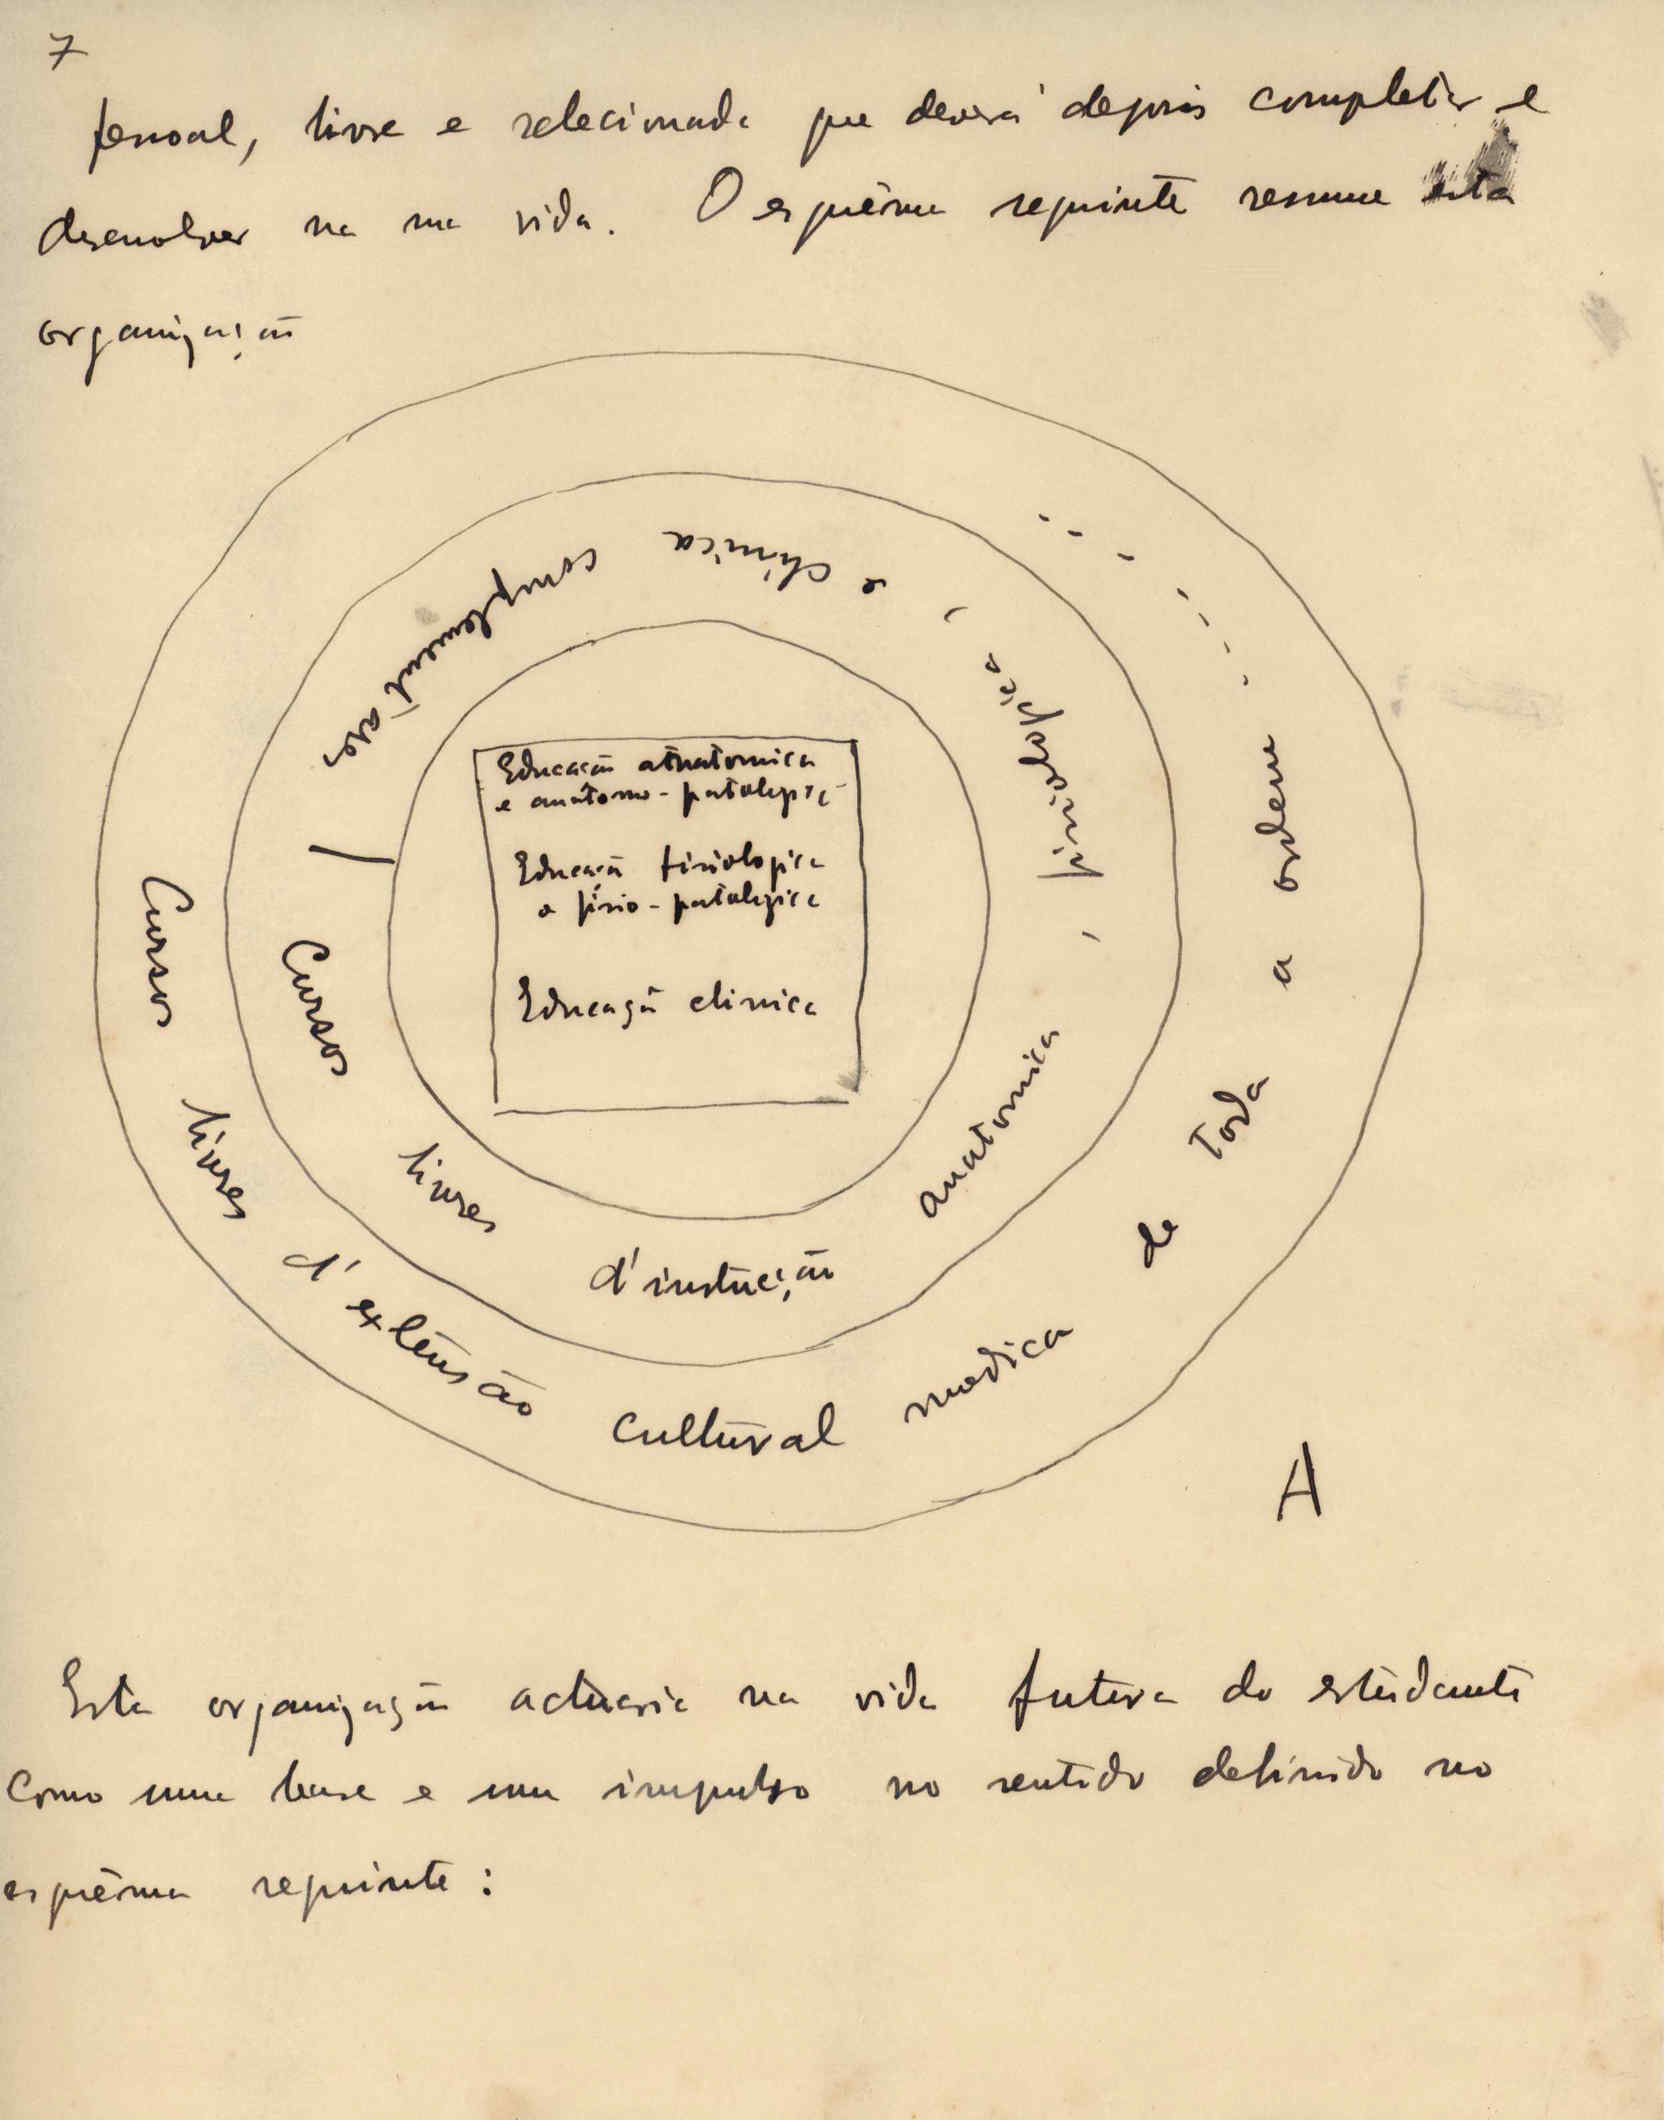 7
pessoal, livre e selecionada que deverá depois completar e
desenvolver na sua vida. O esquêma seguinte resume esta
organização
Educação atnatomica
e anátomo-patologica
Educação fisiologica
e fisio-patologica
Educação clinica
Cursos livres d'instrução anatomica, fisiologica, e clinica complementares
Cursos livres d'extensão cultural medica de toda a ordem .......
A
Esta organização actuaria na vida futura do estudante
como uma base e um impulso no sentido definido no
esquêma seguinte: